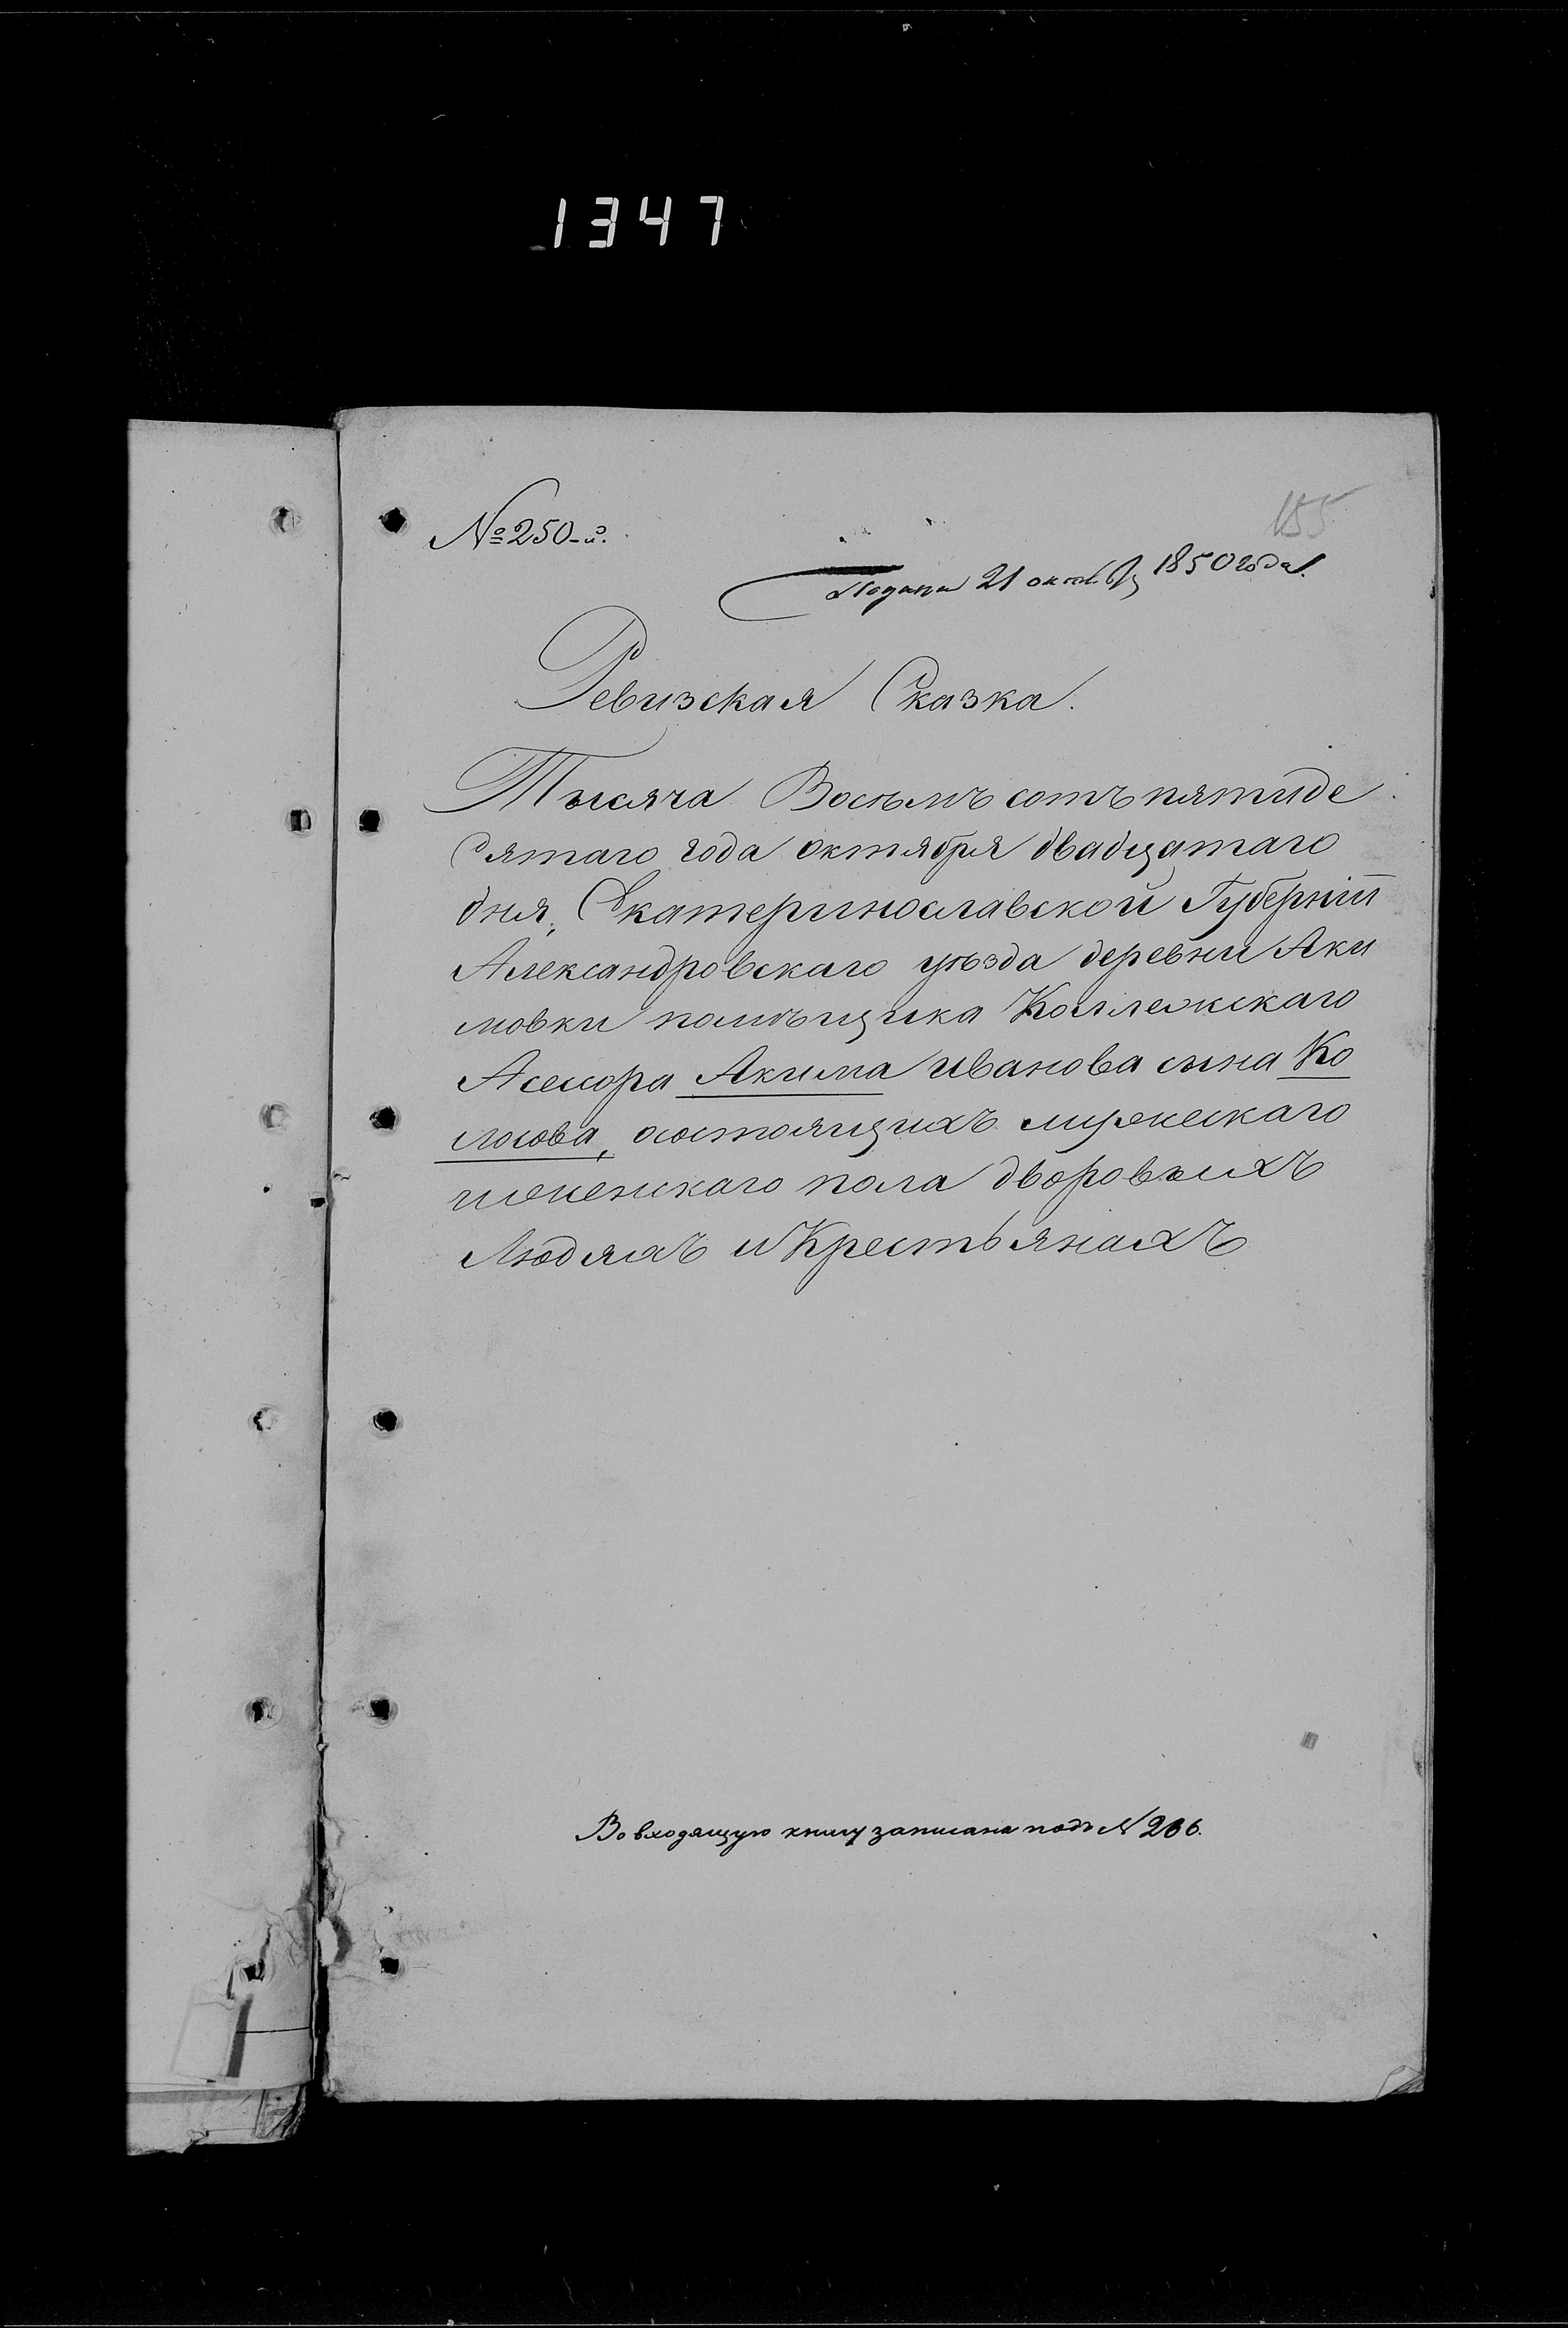 1347
№ 250-й.
155
Подана 21 октября 1850 года.
Ревизская Сказка.
Тысяча Восемъ сотъ пятиде
сятаго года октября двадцатаго
дня, Екатеринославской Губерніи
Александровскаго уѣзда деревни Аки
мовки помѣщика Коллежскаго
Асессора Акима Иванова сына Ко
лосова, осостоящихъ мужескаго
иженскаго пола дворовыхъ
Людяхъ и Крестьянахъ
Во входящую книгу записана подъ № 266.